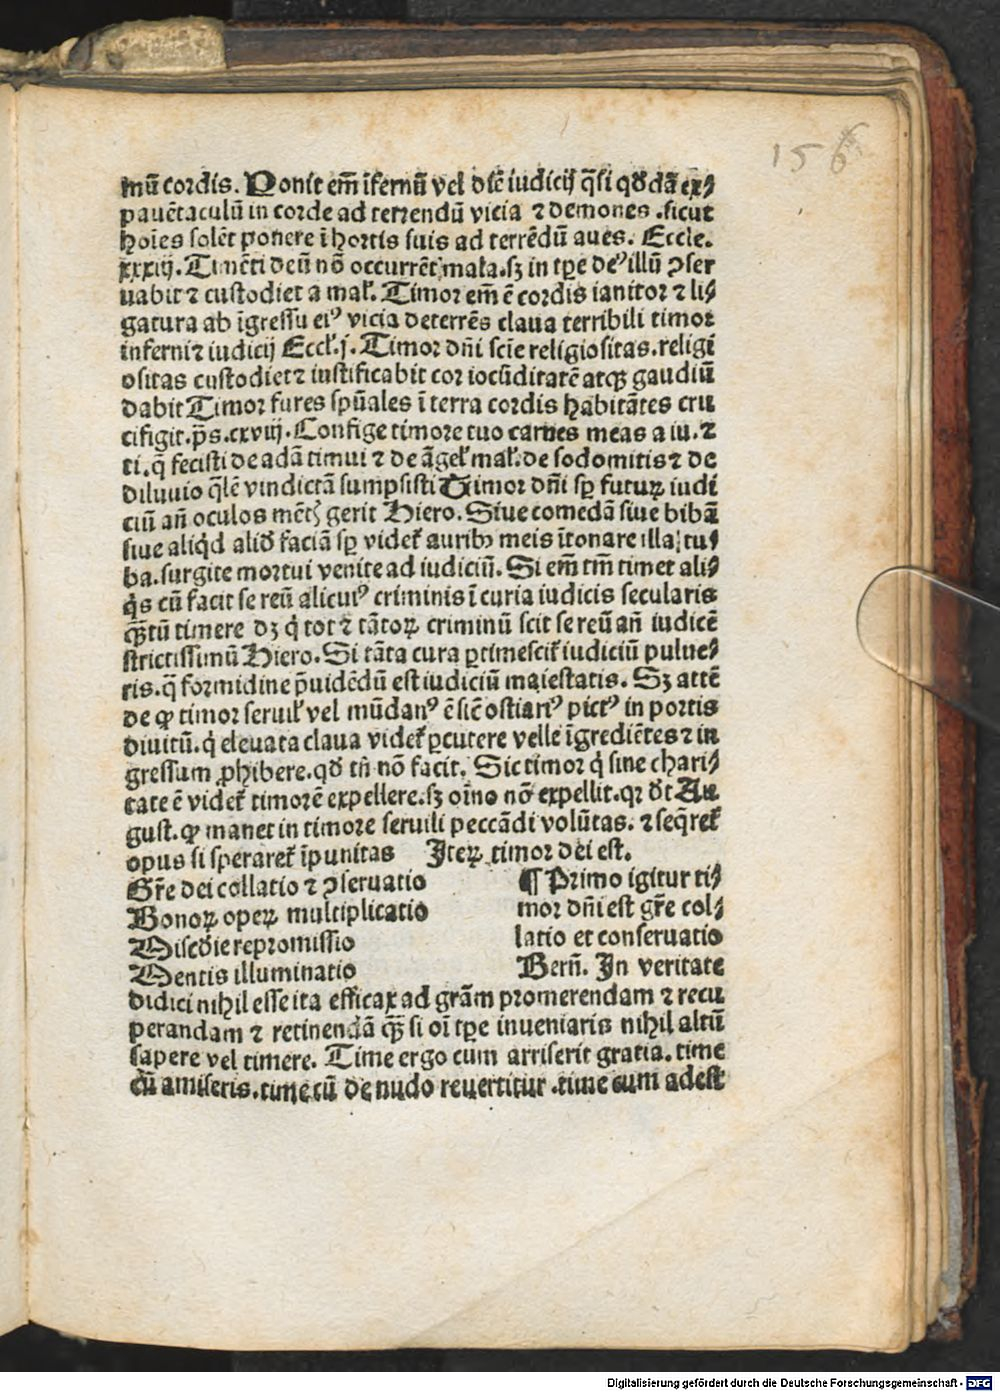 156
mū cordis. Ponit em̄ īfernū vel diē iudicij q̄si qđdā ex⸗
pauētaculū in corde ad terrendū vicia ⁊ demones .sicut
hoīes solēt ponere ī hortis suis ad terrēdū aues. Eccle.
xxxiij. Timēti deū nō occurrēt mala.sꝫ in tp̄e deꝰ illū ꝯser
uabit ⁊ custodiet a mal̓. Timor em̄ ē cordis ianitor ⁊ li⸗
gatura ab īgressu eiꝰ vicia deterrēs claua terribili timor
inferni⁊ iudicij Eccl̓.j. Timor dn̄i scīe religiositas.religi
ositas custodiet⁊ iustificabit cor iocūditatē atqꝫ gaudiū
dabit Timor fures sp̄uales ī terra cordis habitātes cru
cifigit.p̄s.cxviij. Confige timore tuo carnes meas a iu.⁊
ti.q̄ fecisti de adā timui ⁊ de āgel̓ mal̓.de sodomitis⁊ de
diluuio q̄lē vindictā sumpsisti Timor dn̄i sp̄ futuꝝ iudi
ciū an̄ oculos mētꝭ gerit Hiero. Siue comedā siue bibā
siue aliqͥd aliđ faciā sp̄ videt̓ auribꝫ meis ītonare illa tu⸗
ba.surgite mortui venite ad iudiciū. Si em̄ tm̄ timet ali⸗
qͥs cū facit se reū alicuiꝰ criminis ī curia iudicis secularis
qꝫ̄tū timere dꝫ qͥ tot ⁊ tātoꝝ criminū scit se reū an̄ iudicē
strictissimū Hiero. Si tāta cura ꝑtimescit̓ iudiciū pulue⸗
ris.q̄ formidine p̄uidēdū est iudiciū maiestatis. Sꝫ attē
de ꝙ timor seruil̓ vel mūdanꝰ ē sic̄ ostiariꝰ pictꝰ in portis
diuitū.qͥ eleuata claua videt̓ ꝑcutere velle īgrediētes⁊ in
gressum ꝓhibere.qđ tn̄ nō facit. Sic timor qͥ sine chari⸗
tate ē videt̓ timorē expellere.sꝫ oīno nō expellit.qꝛ đt Au
gust.ꝙ manet in timore seruili peccādi volūtas. ⁊ seq̄ret̓
opus si speraret̓ īpunitas Iteꝝ timor dei est.
Gr̄e dei collatio ⁊ ꝯseruatio
Bonoꝝ opeꝝ multiplicatio
Misc̄die repromissio
Mentis illuminatio
¶ Primo igitur ti⸗
mor dn̄i est gr̄e col⸗
latio et conseruatio
Bern̄. In veritate
didici nihil esse ita efficax ad grām promerendam ⁊ recu
perandam ⁊ retinendā qꝫ̄ si oī tp̄e inueniaris nihil altū
sapere vel timere. Time ergo cum arriserit gratia.time
cū amiseris.time cū de nudo reuertitur .time cum adest
Digitalisierung gefördert durch die Deutsche Forschungsgemeinschaft - DFG